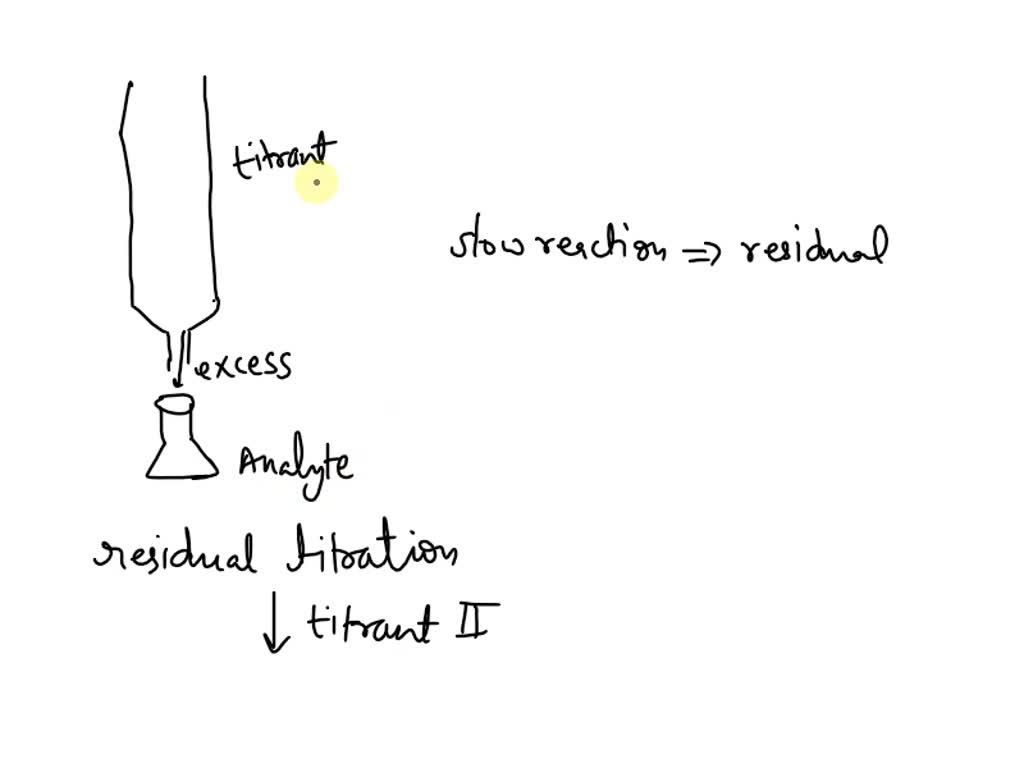 titrant
slow reaction ⇒ residual
excess
Analyte
residual titration
↓ titrant II